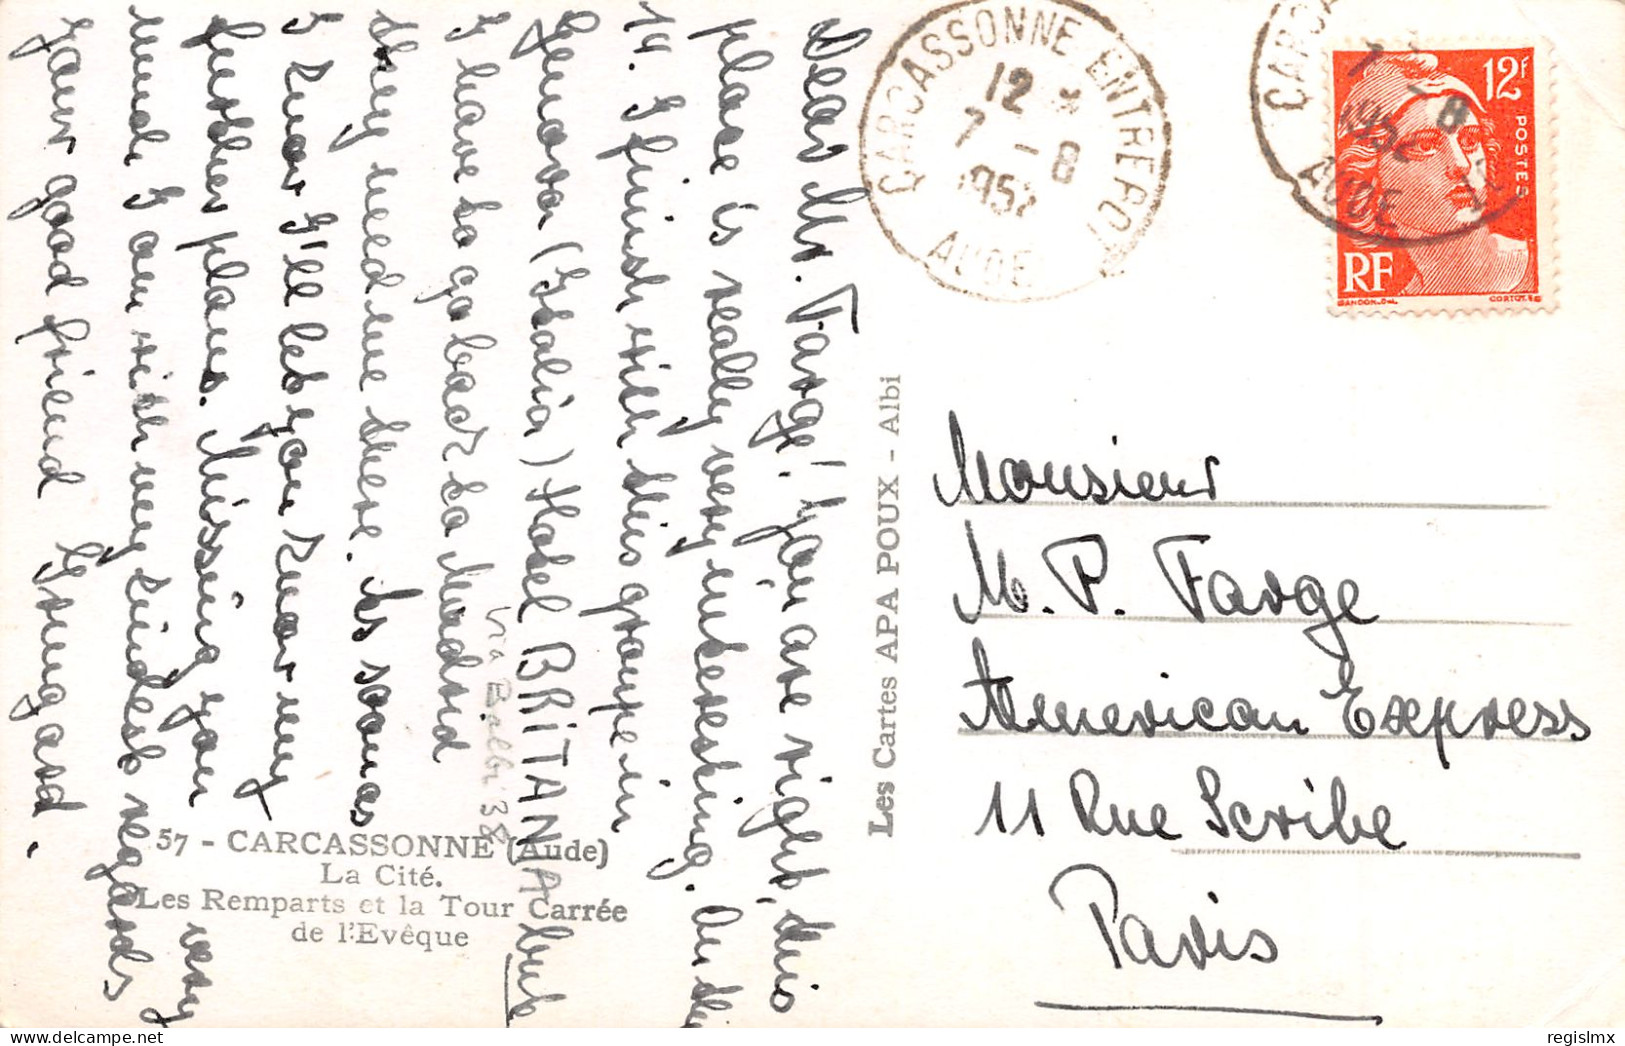 Dear Mr. Farge! You are right, this
place is really very interesting. On the
14. I finish with this groupe in
Genova (Italia) Hotel BRITANNIA but
Via Balbi 38
I have to go back to Madrid
they need me there. As soon as
I know I'll let you know my
further plans. Missing you very
much I am with my kindest regards
your good friend
57 - CARCASSONNE (Aude)
La Cité.
Les Remparts et la Tour Carrée
de l'Evêque
Les Cartes APA POUX - Albi
CARCASSONNE ENTREPOT
12 *
7 - 8
1952
AUDE
CARCA
7 - 8
1952
AUDE
12F
POSTES
RF
GANDON.Del.
CORTOT.SC
Monsieur
M. P. Farge
American Express
11 Rue Scribe
Paris
regislmx